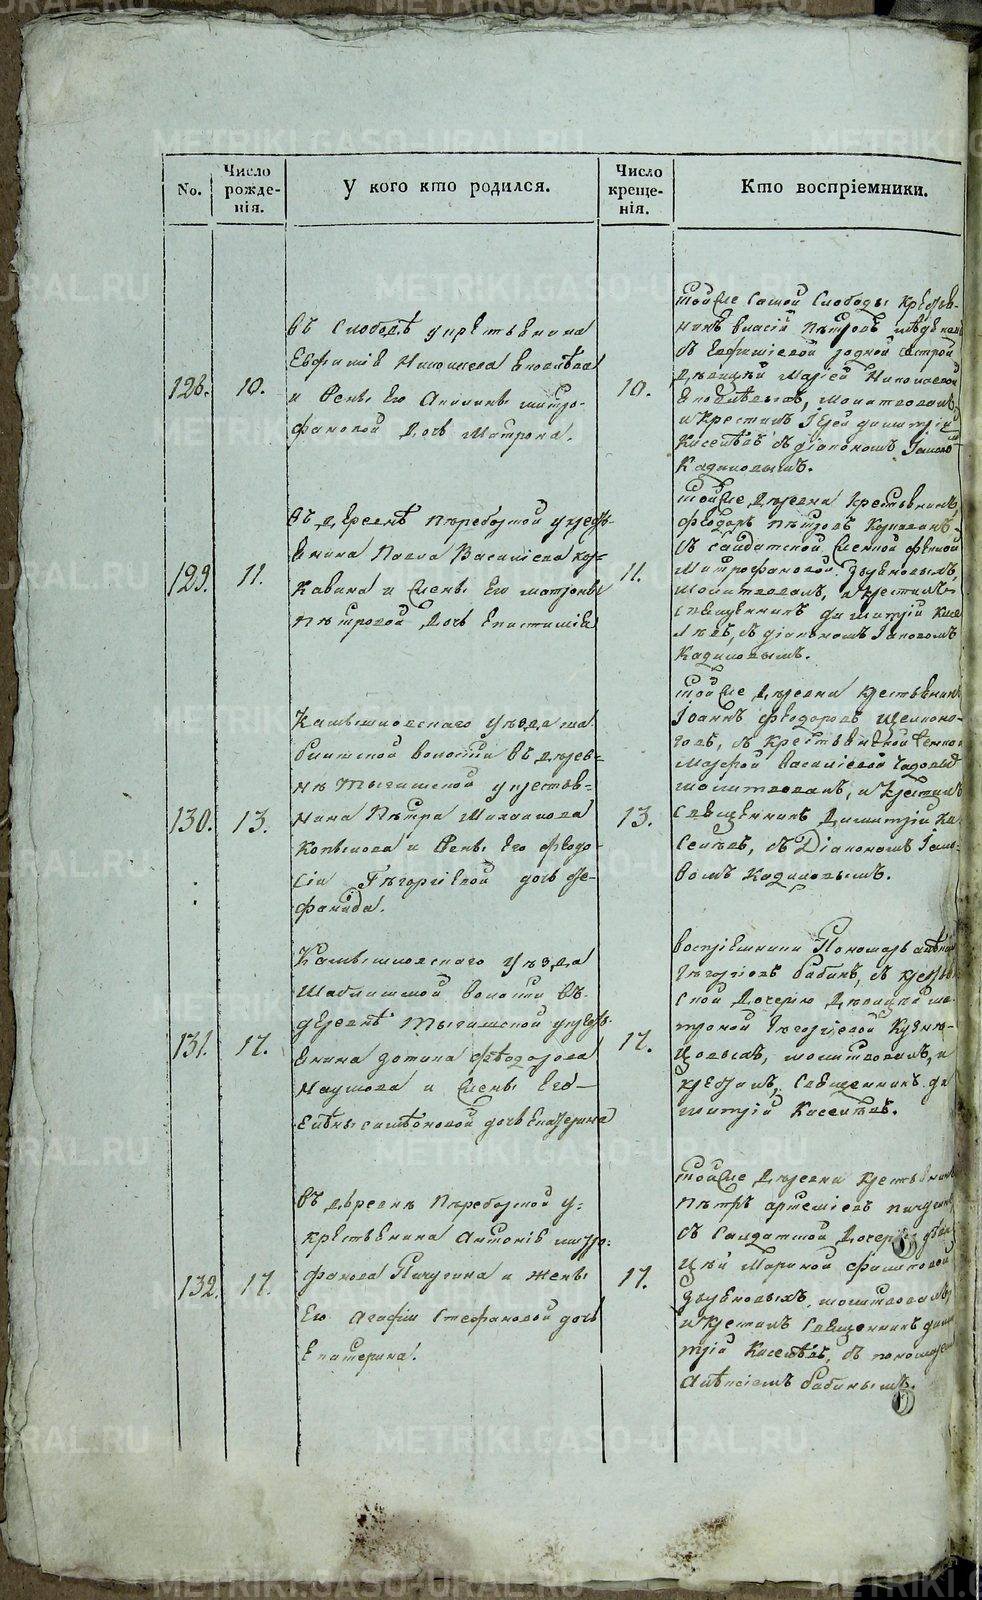 METRIKI.GASO-URAL.RU
No.
Число рожде-
нія.
У кого кто родился.
Число креще-
нія.
Кто воспріемники.
128.
10.
въ Слободѣ у крестьянина
Евфимія Николаева
и жены его Акилины митро-
фановой дочь Матрона.
10.
тойже самой Слободы крестья-
нинъ власій Пѣтровъ
съ Евфиміевой родной сѣстрой
дѣвицей Маріей Николаевой
молитвовалъ
и крестилъ Іерей димитрій
Киселѣвъ съ діакономъ Іаково
Кадиловымъ.
129.
11.
въ деревнѣ Перѣборной у крестья-
янина Павла Василіева
и жены его матроны
Пѣтровой дочь Анастасія
11.
тойже дѣревни крестьянинъ
феодоръ Пѣтровъ
съ салдатской женкой феклой
Митрофановой
молитвовалъ, и крестилъ
священникъ димитрій Кисе
лѣвъ, съ діакономъ Іаковомъ
Кадиловымъ.
130.
13.
Камышловскаго уѣзда ша
блишской волости въ дѣрев-
нѣ Тыгишской у крестья-
нина Пѣтра Михаилова
Копылова и жены его феодо-
сіи Гѣоргіевой дочь фе-
фанида.
13.
тойже дѣревни крестьянинъ
Іоаннъ феодоровъ
съ крестьянской женко
Марфой Василіевой
молитвовалъ, и крестилъ
Священникъ Димитрій Ки
селѣвъ, съ Діакономъ Іако-
вомъ Кадиловымъ.
131.
17.
Камышловскаго уѣзда
Шаблишской волости въ
деревнѣ Тыгишской у кресть-
янина фотина феодорова
Наумова и жены его
Елѣны симѣоновой дочь Екатерина
17.
воспріемники Пономарь алѣксій
Гѣоргіевъ Бабинъ, съ крестьян
ской дочерію дѣвицей ма-
троной Гѣоргіевой Кузнѣ-
цовыхъ, молитвовалъ, и
крестилъ, священникъ ди
митрій Киселѣвъ.
132.
17.
въ дѣревнѣ Перѣборной у
крестьянина Антонія митро-
фанова Пичугина и жены
его Агафіи Стефановой дочь
Екатерина.
17.
тойже дѣревни крестьянинъ
Пѣтръ артѣміевъ Пичугинъ,
съ Салдатской дочерію дѣви
цей Мариной филиповой
молитвовалъ,
и крестилъ Священникъ дими
трій Киселѣвъ, съ пономаремъ
Алѣксіемъ Бабинымъ.